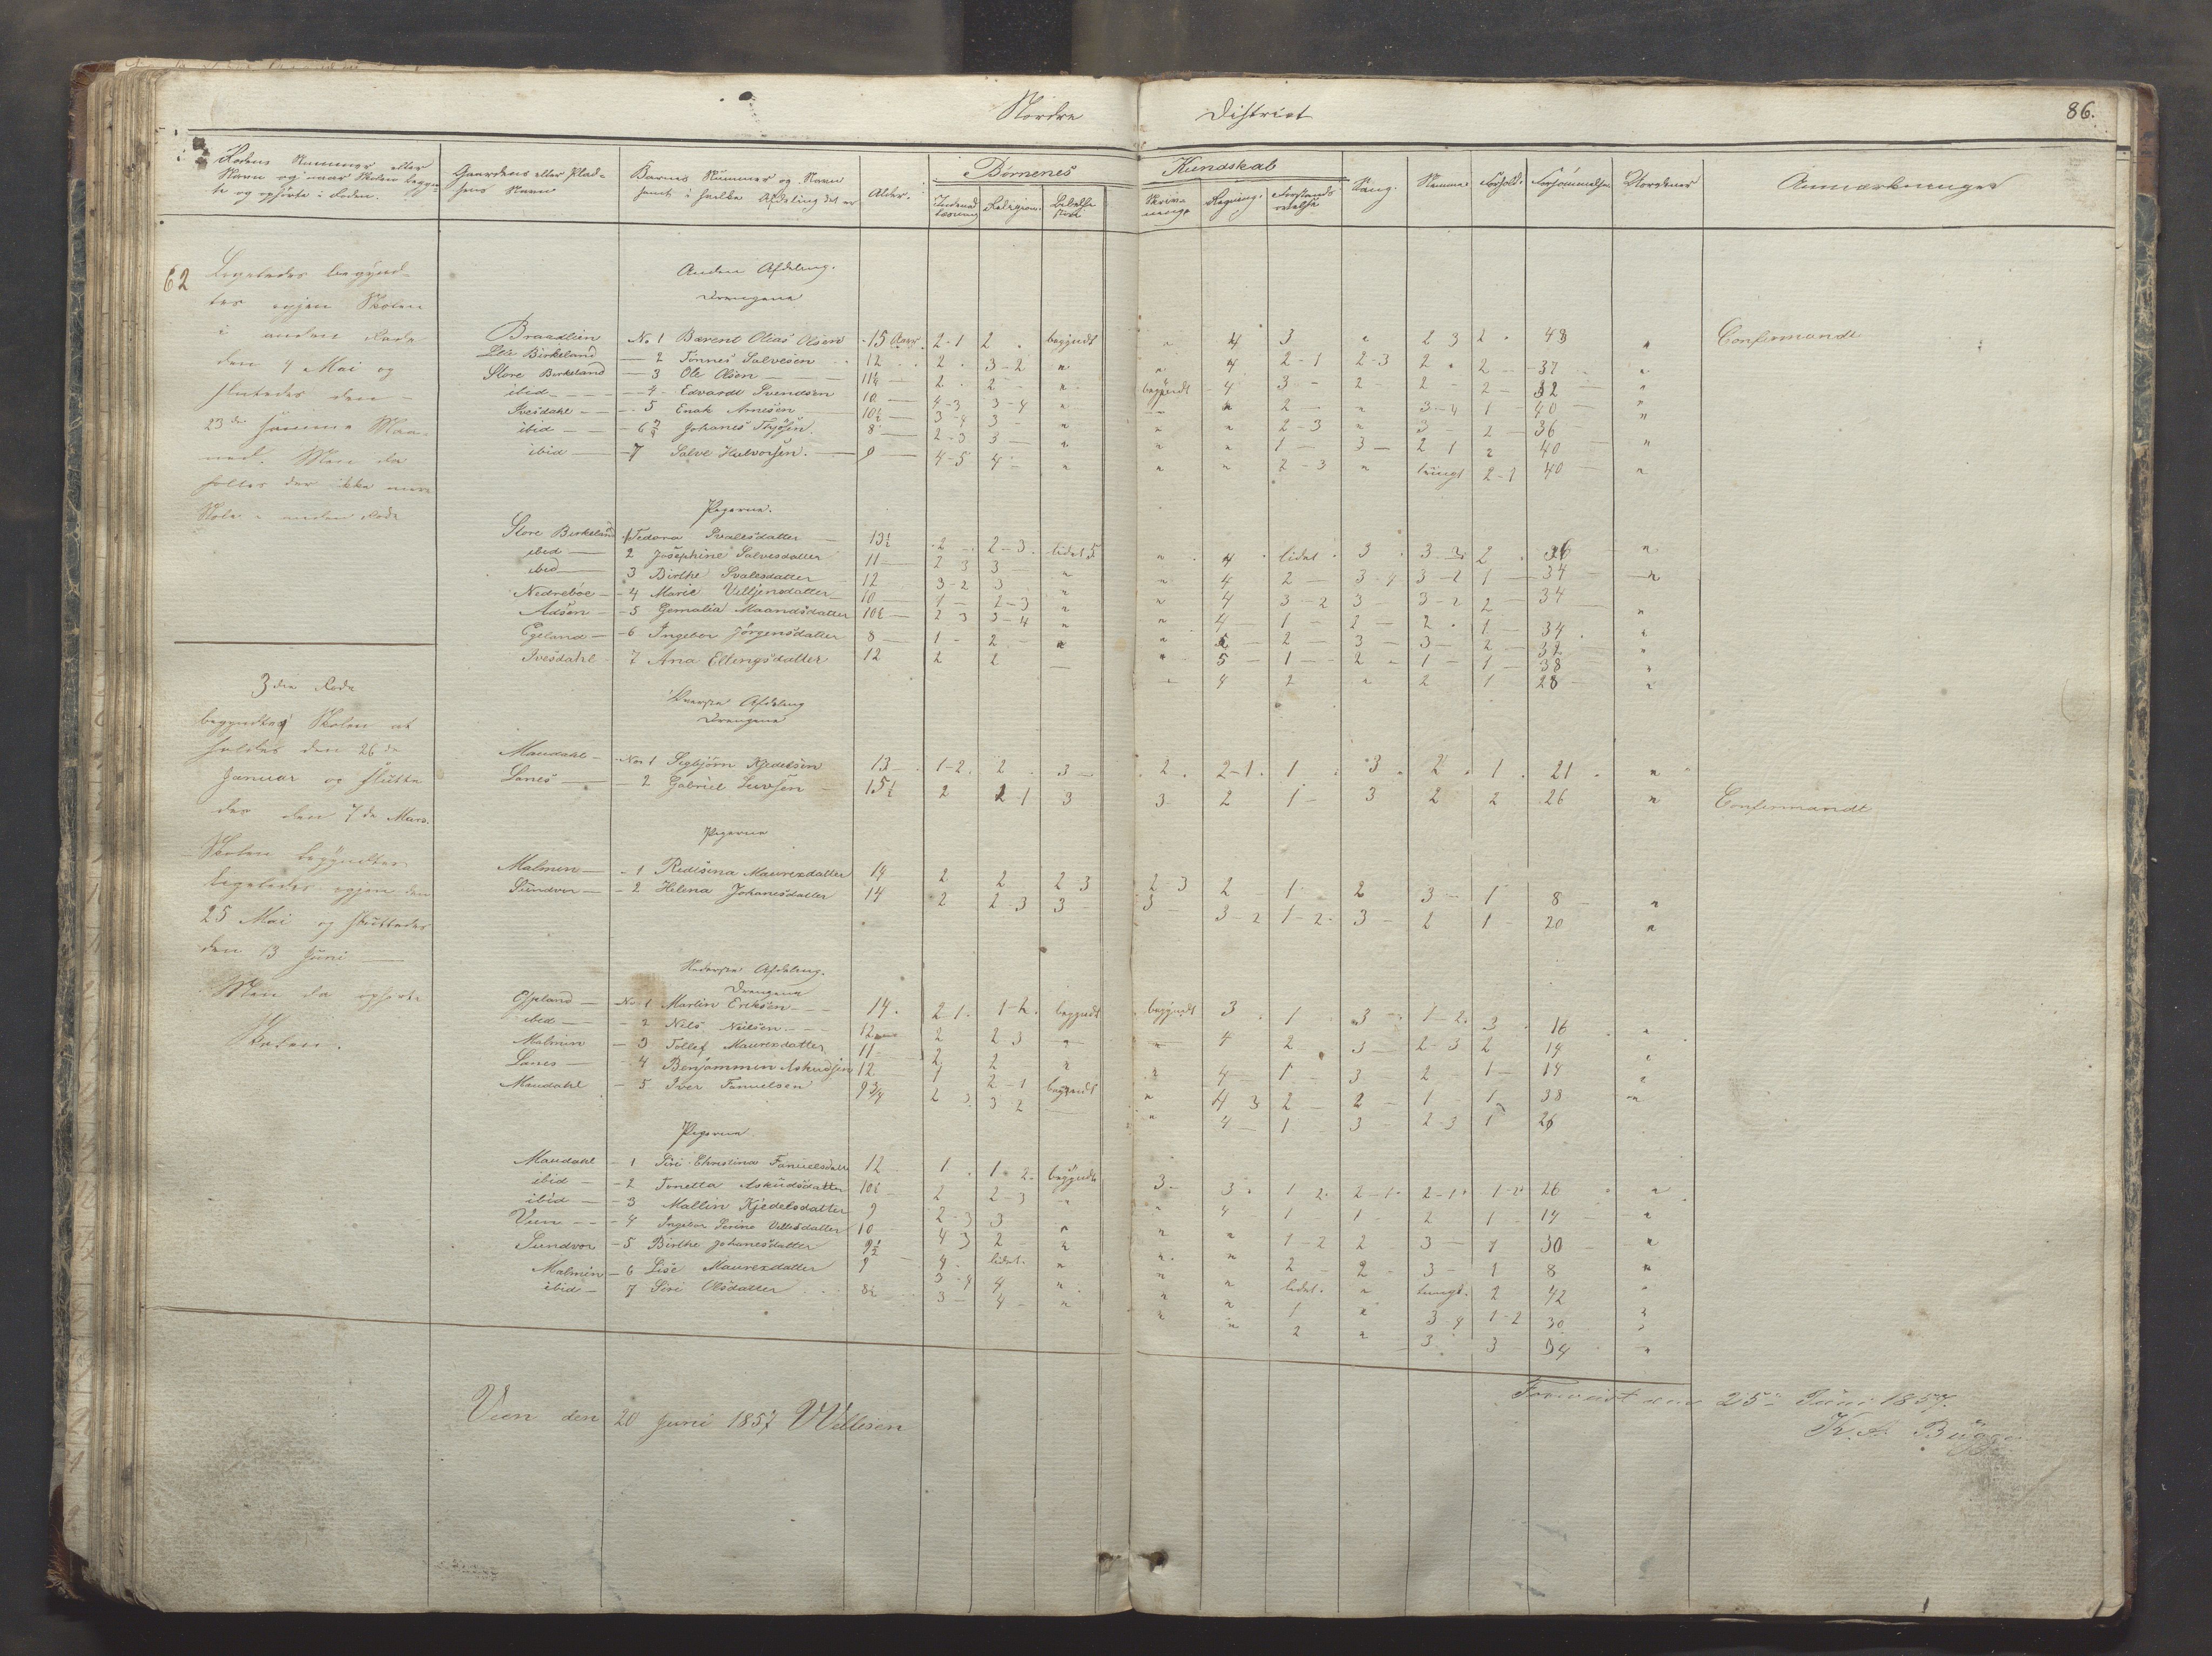 Nordre District 86.
Rodens Nummer eller Navn og naar Skolen begyndte og ophörte i Roden.
Gaardens eller Pladsens Navn
Barns Nummer og Navn samt i hvilke Afdeling det er
Alder.
Börnenes Kundskab
Religion.
Regning.
Sang.
Nemme
Forhold.
Forsömmelser
Uordener
Anmærkninger
62 Ligeledes begyndtes igjen Skolen
i anden Rode
den 4 Mai og
sluttedes den
23de samme Maaned. Men da
holtes der ikke mere
Skole i anden Rode
Anden Afdeling.
Drengene
Braadlien No 1 Bærent Olias Olsen 15 Aar 2-1 2 begyndt " 4 3 " 2 3 2 43 " Confirmandt
Lille Birkeland 2 Tønnes Salvesen 12 2 3-2 " " 4 2-1 2-3 2 2 37 "
Store Birkeland 3 Ole Olsen 11½ 2 2 " begyndt 4 3 2 2 2 32 "
ibid 4 Edvardt Svendsen 10 4-3 3-4 " 2 " 3-4 1 40 "
Ivesdahl 5 Enok Arnesen 10½ 3-4 3 " " " 2-3 " 3 2 36 "
ibid 6 Johanes 8 2-3 3 " " " 1 3 2 1 2 40 "
ibid 7 Salve Halvorsen. 9 4-5 4 " " " 2-3 " tungt 2-1 40 "
Pigerne.
Store Birkeland 1 Tedora Svalesdatter 13½ 2 2-3 lidet 5 " 4 lidet 3 3 2 36 "
ibid 2 Josephine Salvesdatter 11 2 3 3 " " 4 2 3-4 3-2 1 34 "
ibid 3 Birthe Svalesdatter 12 3-2 3 " " 4 3-2 3 3-2 2 34
Nedreböe 4 Marie Villjemsdatter 10 1 2-3 " " 4 1 2 2 1 34 "
Adsen 5 Gemalia Maandsdatter 10½ 2 3 3-4 " " 5 2 3 3 2 32 "
Egeland 6 Ingebor Jörgensdatter 8 1 2 " " 5 1 2 1 1 38 "
Ivesdahl 7 Ana Ellingsdatter 12 2 2 4 2 " 2 1 28 "
3die Rode
begyndtes Skolen at
holdes den 26de
Januar og sluttedes den 7de Mars.
Skolen begyndtes
ligeledes igjen den
25 Mai og sluttedes
den 13 Juni
Men da ophörte
Skolen.
Överste Afdeling
Drengene
Maudahl No 1 Sigbjörn Kjedelsen 13 1-2 2 3 2 2-1 1 3 2 1 21 "
Lanes 2 Gabriel 15½ 2 2-1 3 3 2 1 3 2 2 26 " Confirmandt
Pigerne
Malmen 1 Redisina Maurexdatter 14 2 2 2 3 2-3 2 1 2 3 1 8 "
Sundvor 2 Helena Johanesdatter 14 2 2-3 3 3 3-2 1-2 3 2 1 20 "
Nederste Afdeling.
Drengene
Espland No 1 Martin Eriksen 14 2-1 1-2 begyndt begyndt 3 1 3 1-2 3 16 "
ibid 2 Nils Nielsen 12 2 2 3 " " 4 2 3 2-3 2 14 "
Malmin 3 Tollef Maurexdatter 11 2 2 " " 4 1 3 2 1 14 "
Lanes 4 Benjammin Askudsen 12 1 2-1 begyndt " 4 3 2 2 1 1 38 "
Maudahl 5 Iver Fanuelsen 9¾ 2 3 3 2 " 4 1 3 2-3 1 26
Pigerne
Maudahl 1 Siri Christina Fanuelsdatt 12 1 1 2 begyndt 3 3 1 2 2-1 2-1 1-2 26 "
ibid 2 Tonetta Askudsdatter 10½ 2 2-3 " " 4 1 1 2 1 14 "
ibid 3 Mallin Kjedelsdatter 9 2-3 3 " " 1 2 2 3 1 30 "
Veen 4 Ingebor Serine Villesdatter 10 4 3 2 " " " 2 2 3 1 8 "
Sundvor 5 Birthe Johanesdatter 9½ 4 lidet " " " lidet " tungt 2 42 "
Malmin 6 Lise Maurexdatter 9 3-4 4 " " " 1 " 3 4 1-2 30 "
ibid 7 Siri Olsdatter 8½ 3 4 " " " 2 " 3 3 34 "
Veen den 20 Juni 1857 Willesen
Foreviist den 25de Juni 1857.
K. A. Bügge